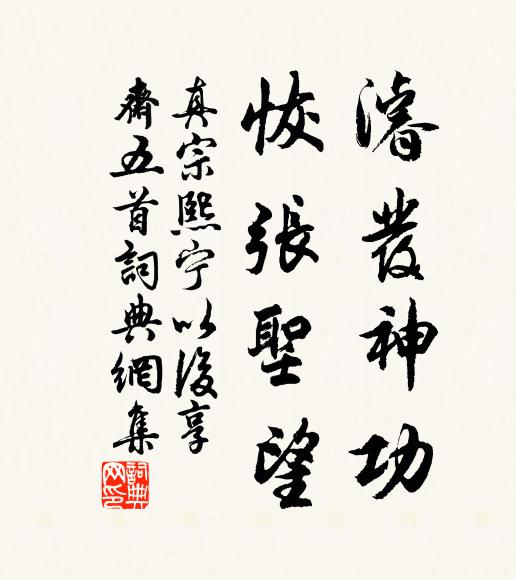 濬發神功
恢張聖望
真宗熙宁以後享
齋五首詞典網集
詞典网印